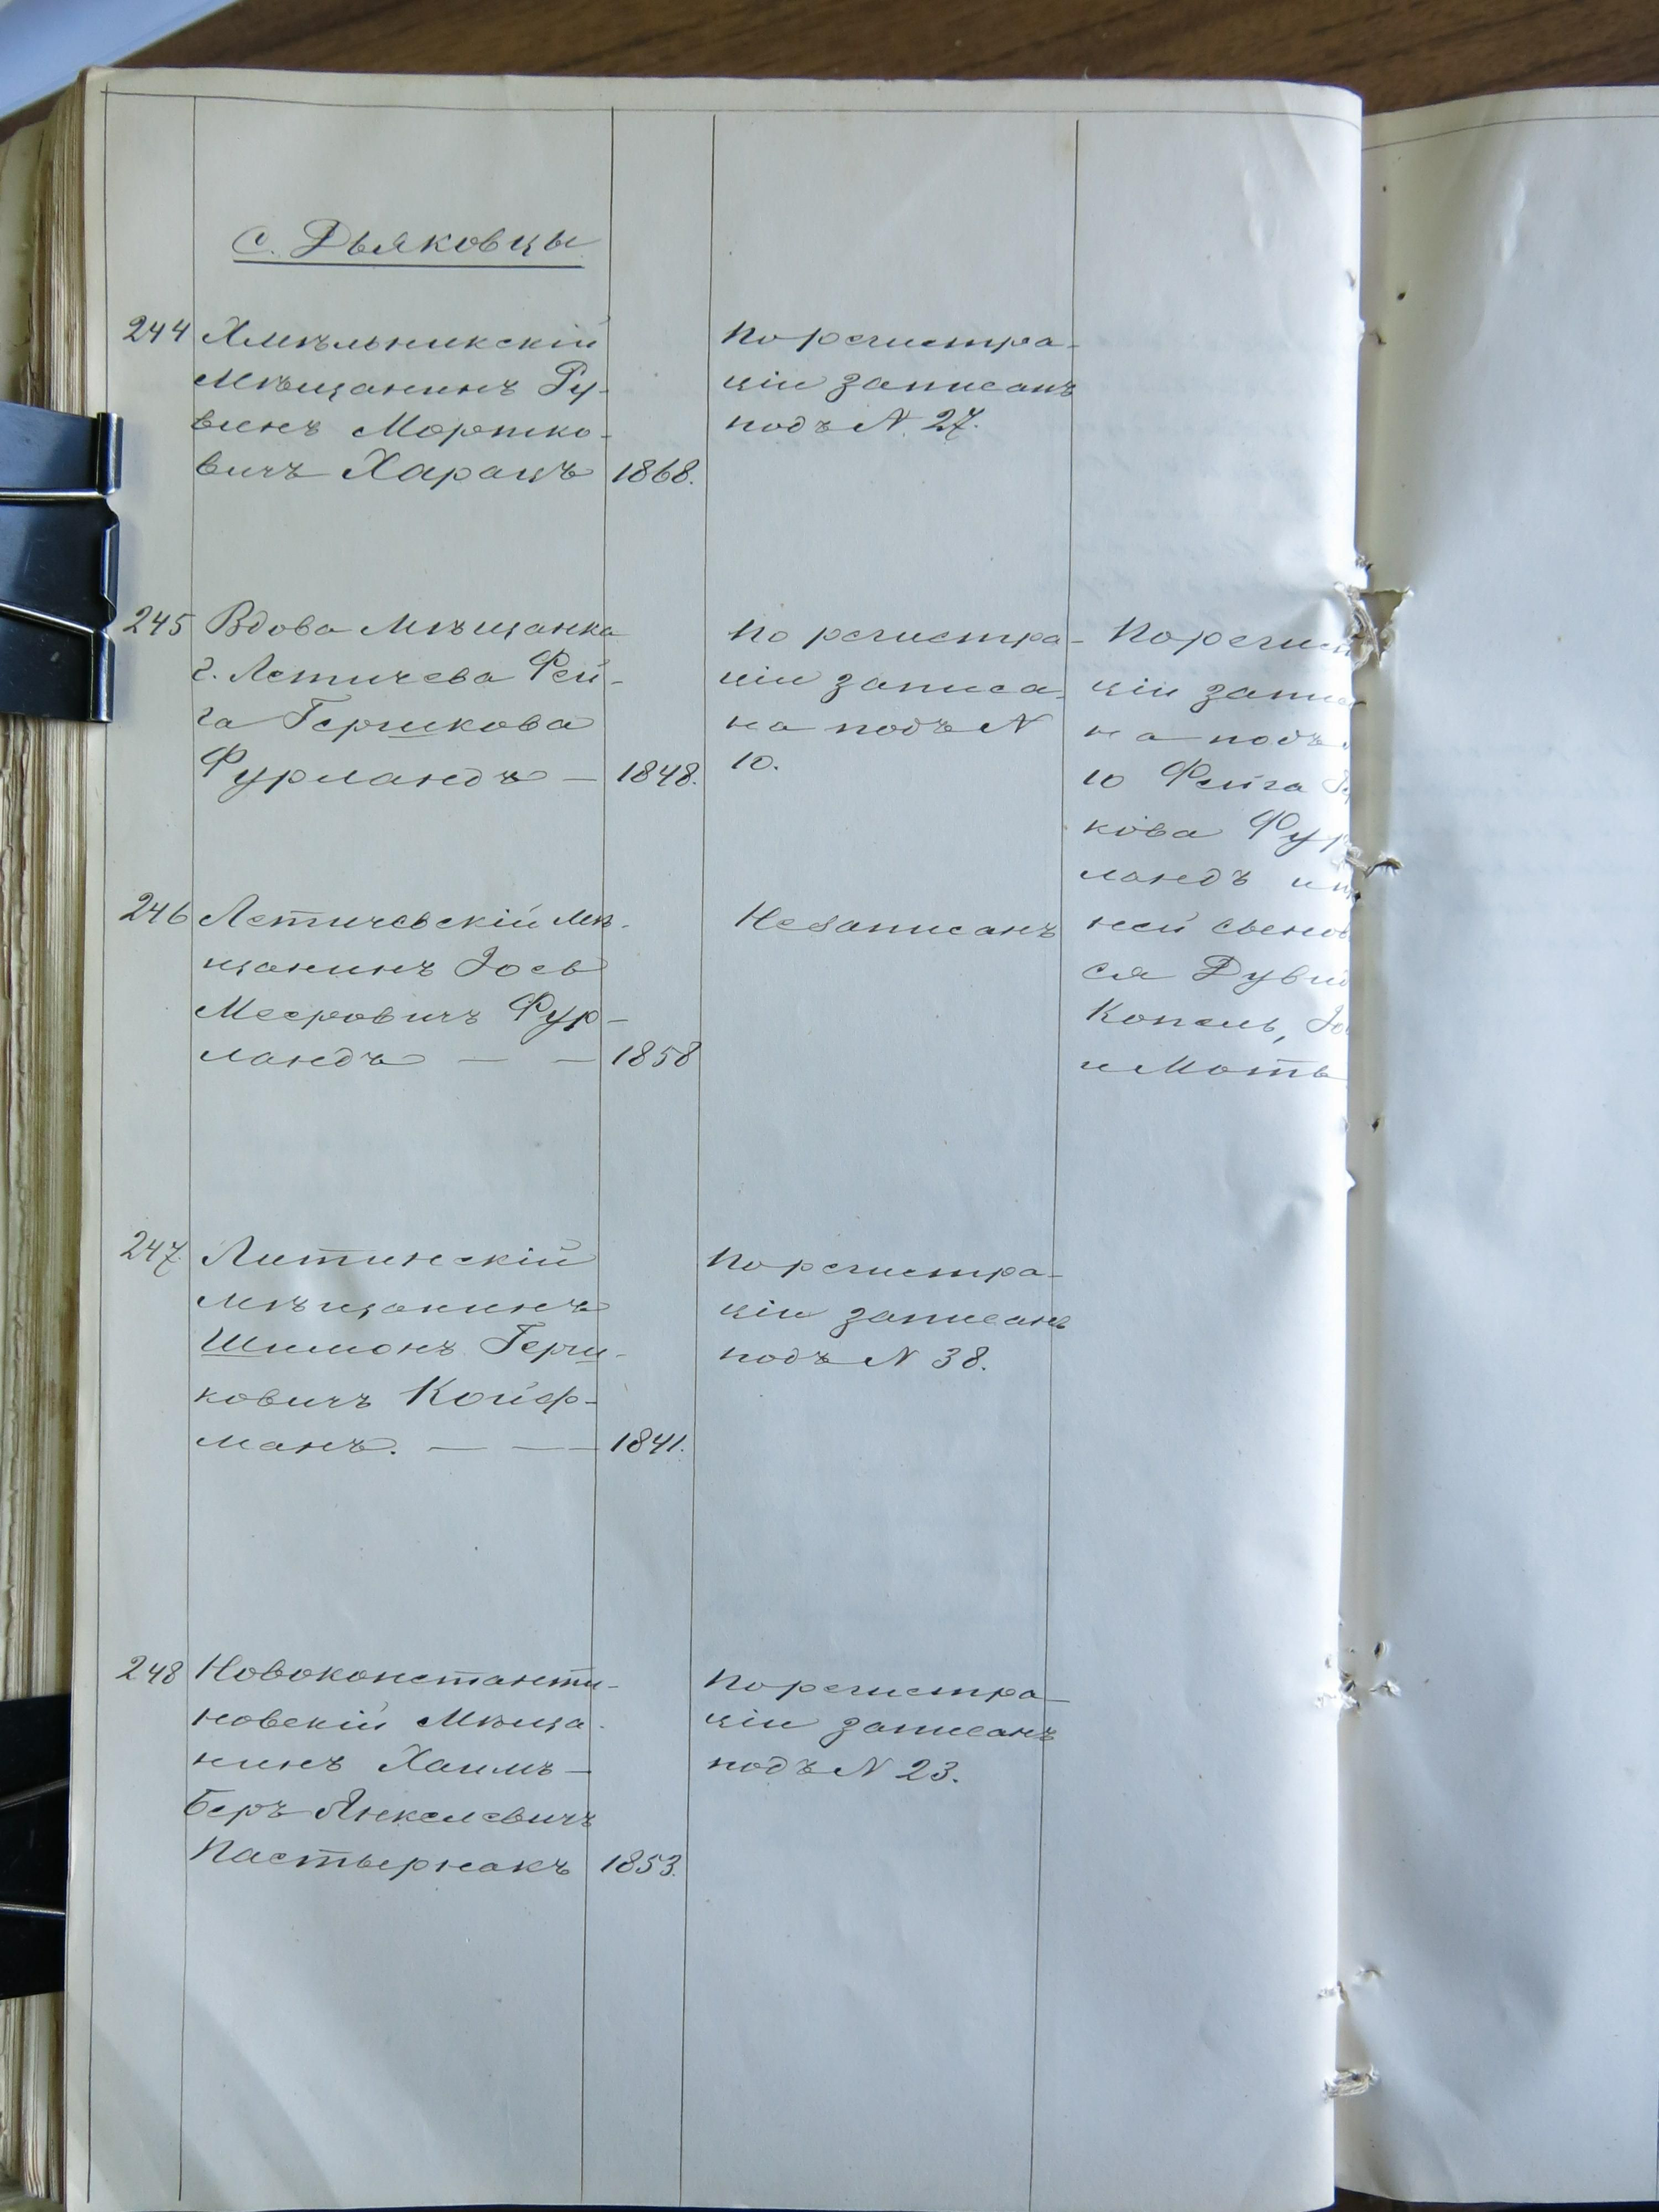 с. Дьяковцы
244 Хмѣльникскій
мѣщанинъ Ру-
винъ Мортко-
вичъ Харацъ 1868.
по регистра-
ціи записанъ
подъ N. 27.
245 Вдова мѣщанка
г. Летичева Фей-
га Гершкова
Фурландъ — 1848.
по регистра-
ціи записа-
на подъ N
10.
По регист
ціи запис
на подъ
10 Фейга
кова Фур
ландъ и
ней сынов
ся Дувид
Копель,
и Моть
246 Летичевскій мѣ-
щанинъ Іось
Мееровичъ Фур-
ландъ — — 1858
Незаписанъ
247. Литинскій
мѣщанинъ
Шимонъ Герш-
ковичъ Койф-
манъ. — — 1841.
по регистра-
ціи записанъ
подъ N 38.
248 Новоконстанти-
новскій мѣща-
нинъ Хаимъ-
Беръ Янкелевичъ
Пастырнакъ 1853.
по регистра-
ціи записанъ
подъ N 23.